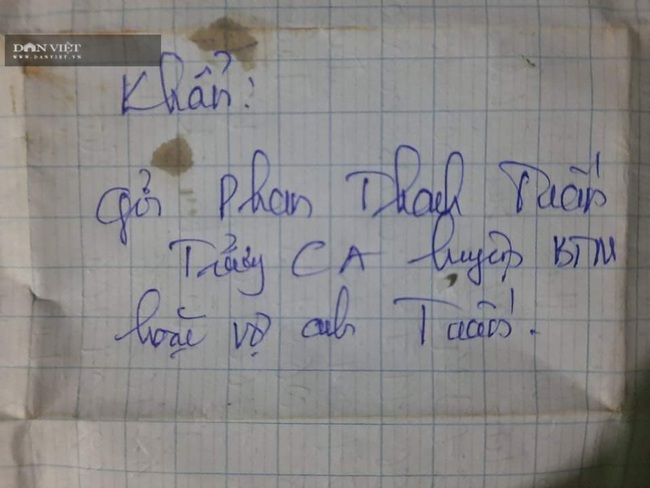 DÂN VIỆT
WWW.DANVIET.VN
Khẩn:
Gửi Phan Thanh Tuấn
Trưởng CA huyện BTM
hoặc vợ anh Tuấn.